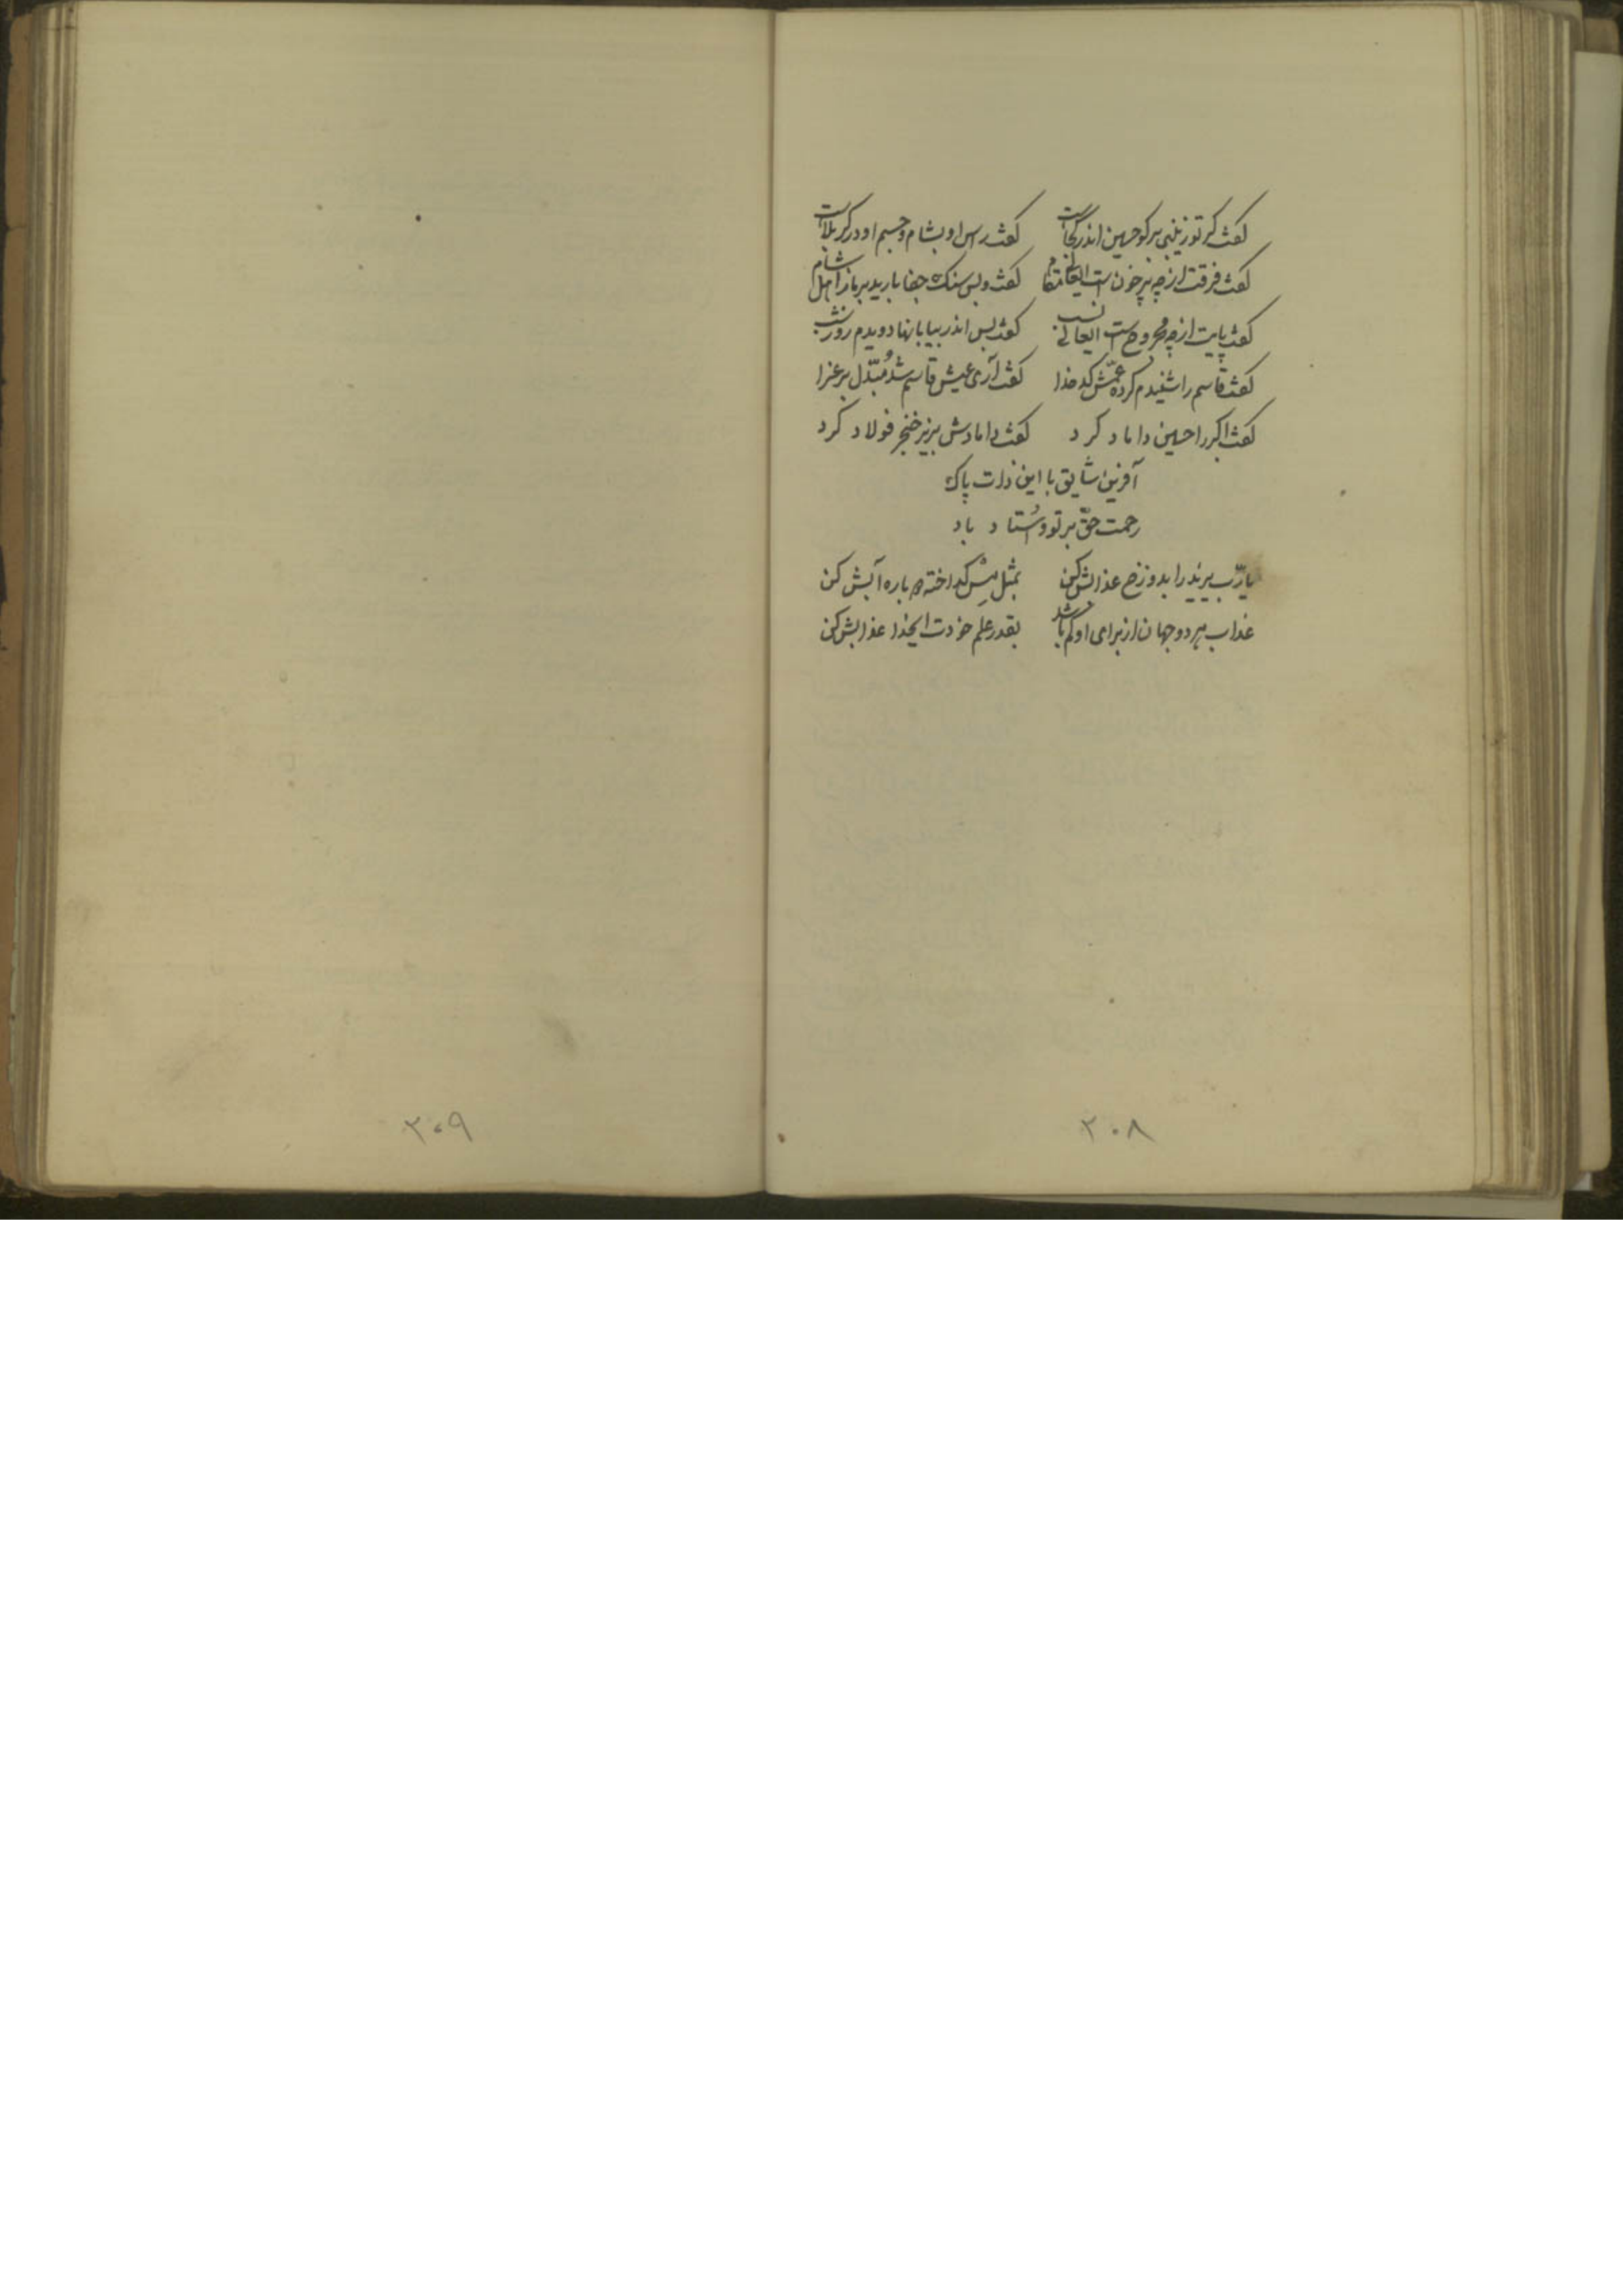 گفت گر تو زینبی بر گو حسین اندر کجاست گفت راس او بشام و جسم او در کربلاست
گفت فرقت از چه پر خون است ایعالی مقام گفت و بس سنک جفا بارید بر ما ز اهل شام
گفت پایت از چه مجروح است ایعالی نسب گفت بس اندر بیابانها دویدم روز و شب
گفت قاسم را شنیدم کرده عمّش کدخدا گفت آری عیش قاسم شد مُبَدّل بر عزا
گفت اکبر را حسین داماد کرد گفت دامادش بزیر خنجر فولاد کرد
آفرین شایق با این ذات پاک
رحمت حقّ بر تو و اُستاد باد
یا ربّ یزید را بدوزخ عذابش کن بمثل مِس گداخته باره آبش کن
عذاب هر دو جهان از برای او کم باشد بقدر علم خودت ایخدا عذابش کن
۲۰۸
۲۰۹